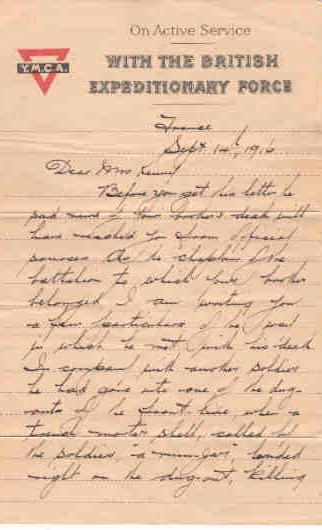 On Active Service
Y.M.C.A.
WITH THE BRITISH
EXPEDITIONARY FORCE
France
Sept 14th, 1916
Dear Mrs Kenny
Before you get this letter the
sad news of your brother's death will
have reached you from official
sources. As the chaplain of the
battalion to which your brother
belonged I am writing you
a few particulars of the way
in which he met with his death
In company with another soldier
he had gone into one of the dug-
outs of the front line when a
trench mortar shell, called by
the soldiers, a minnie, landed
right on the dug-out, killing